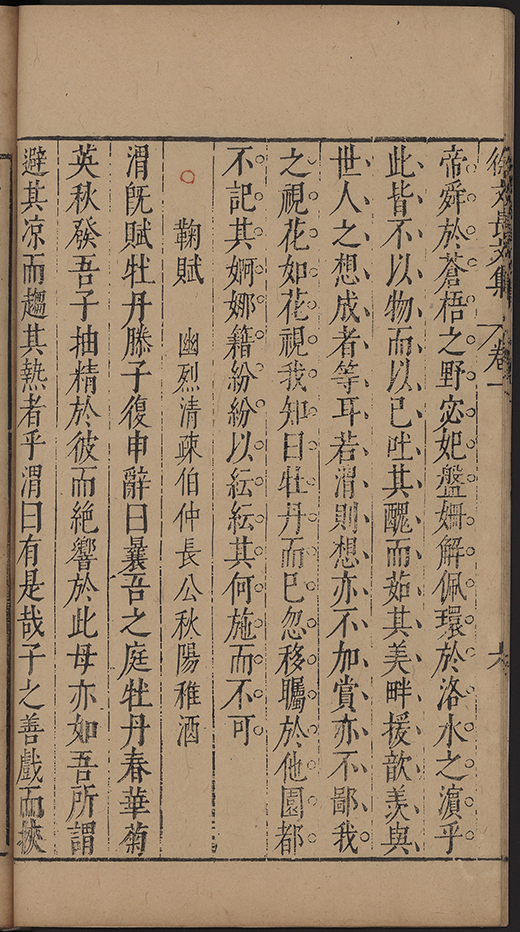 徐文長文集 卷一 六
帝舜於蒼梧之野宓妃盤姍解佩環於洛水之濵乎
此皆不以物而以已吐其醜而茹其美畔援歆羨與
世人之想成者等耳若渭則想亦不加賞亦不鄙我
之視花如花視我知曰牡丹而已忽移矚於他園都
不記其婀娜籍紛紛以紜紜其何施而不可
鞠賦 幽烈清疎伯仲長公秋陽稚酒
渭旣賦牡丹滕子復申辭曰曩吾之庭牡丹春華菊
英秋發吾子抽精於彼而絕響於此毋亦如吾所謂
避其凉而趨其熱者乎渭曰有是哉子之善戲而狹